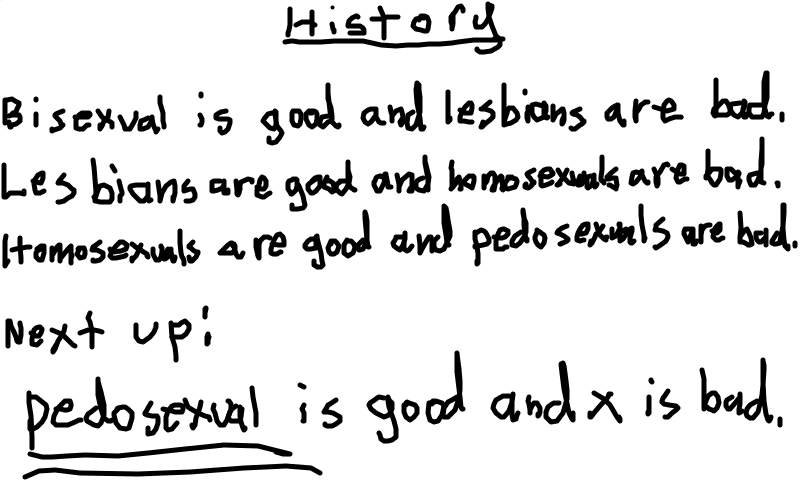 History
Bisexual is good and lesbians are bad.
Lesbians are good and homosexuals are bad.
Homosexuals are good and pedosexuals are bad.
Next up:
pedosexual is good and x is bad.